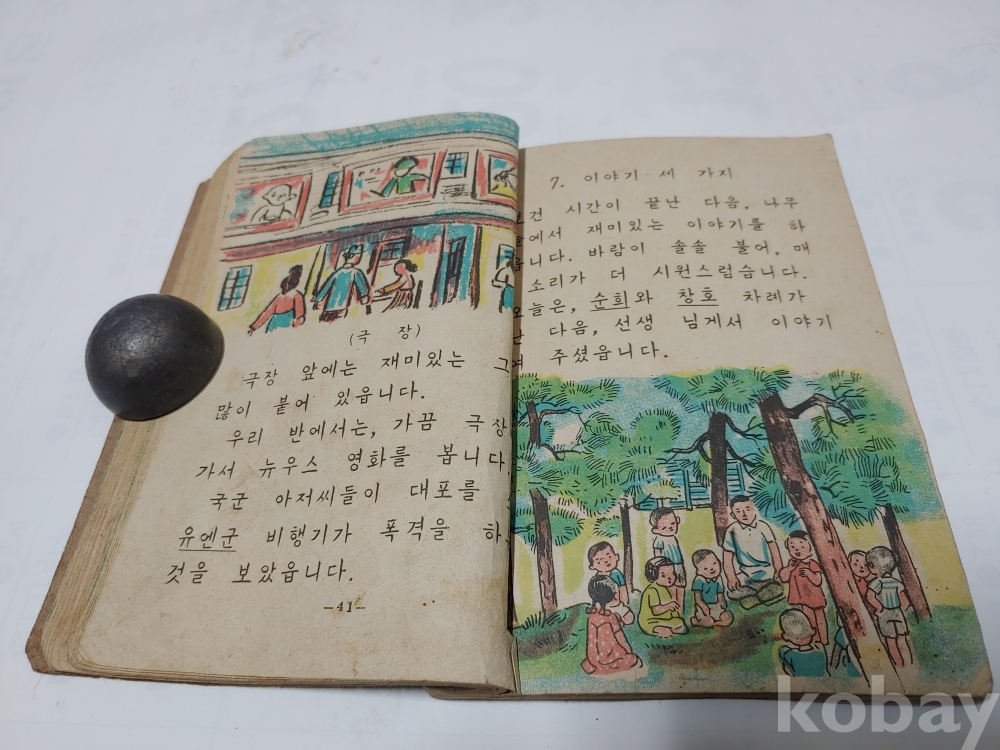 (극 장)
극장 앞에는 재미있는 그
많이 붙어 있읍니다.
우리 반에서는, 가끔 극장
가서 뉴우스 영화를 봅니다.
국군 아저씨들이 대포를
유엔군 비행기가 폭격을 하
것을 보았읍니다.
-41-
7. 이야기 세 가지
시간이 끝난 다음, 나무
에서 재미있는 이야기를 하
니다. 바람이 솔솔 불어, 매
소리가 더 시원스럽습니다.
오늘은, 순희와 창호 차례가
다음, 선생 님게서 이야기
주셨읍니다.
kobay